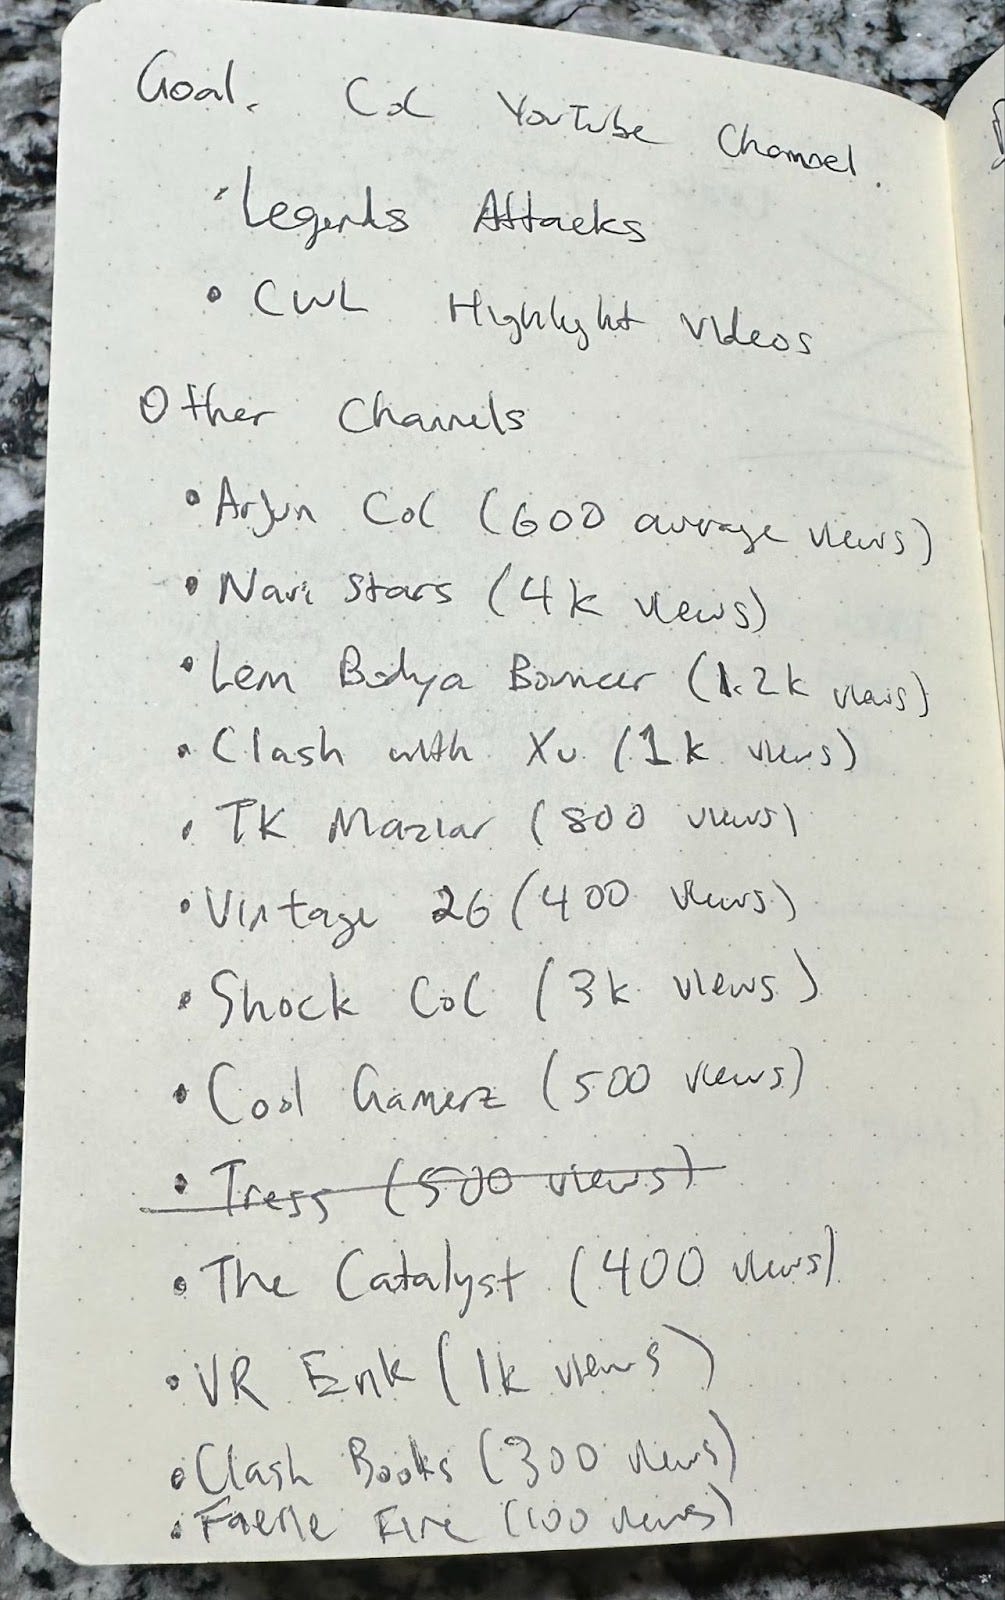 Goal. CoC YouTube Channel.
• Legends Attacks
• CWL Highlight videos
Other Channels
• Arjun CoC (600 average views)
• Navi Stars (4k views)
• Lem Bodya Bouncer (1.2k views)
• Clash with Xu (1k views)
• TK Maziar (800 views)
• Vintage 26 (400 views)
• Shock CoC (3k views)
• Cool Gamerz (500 views)
• Tress (500 views)
• The Catalyst (400 views)
• VR Erik (1k views)
• Clash Books (300 views)
• Faerie Fire (100 views)